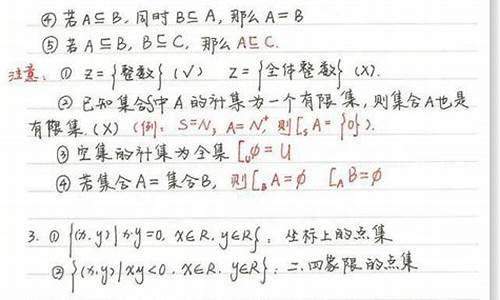 ④ 若 A⊆B, 同时 B⊆A, 那么 A=B
⑤ 若 A⊆B, B⊆C, 那么 A⊆C.
注意: ① Z={整数} (√) Z={全体整数} (X).
② 已知集合S中A的补集为一个有限集, 则集合A也是
有限集. (X) (例: S=N, A=N⁺, 则 ∁sA={0}).
③ 空集的补集为全集 ∁∪φ=U
④ 若集合A=集合B, 则∁BA=φ ∁AB=φ
3. ① {(x.y)|x·y=0, x∈R, y∈R}: 坐标上的点集
② {(x.y)|xy<0. x∈R. y∈R}: 二.四象限的点集